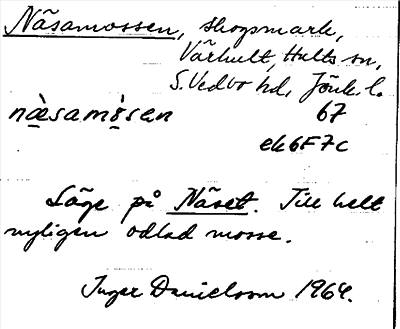 Näsamossen, skogsmark,
Vårhult, Hults sn,
S. Vedbo hd, Jönk. l.
næ̀samò̤sen 67
ek6F7c
Läge på Näset. Till helt
nyligen odlad mosse.
Inger Danielsson 1964.